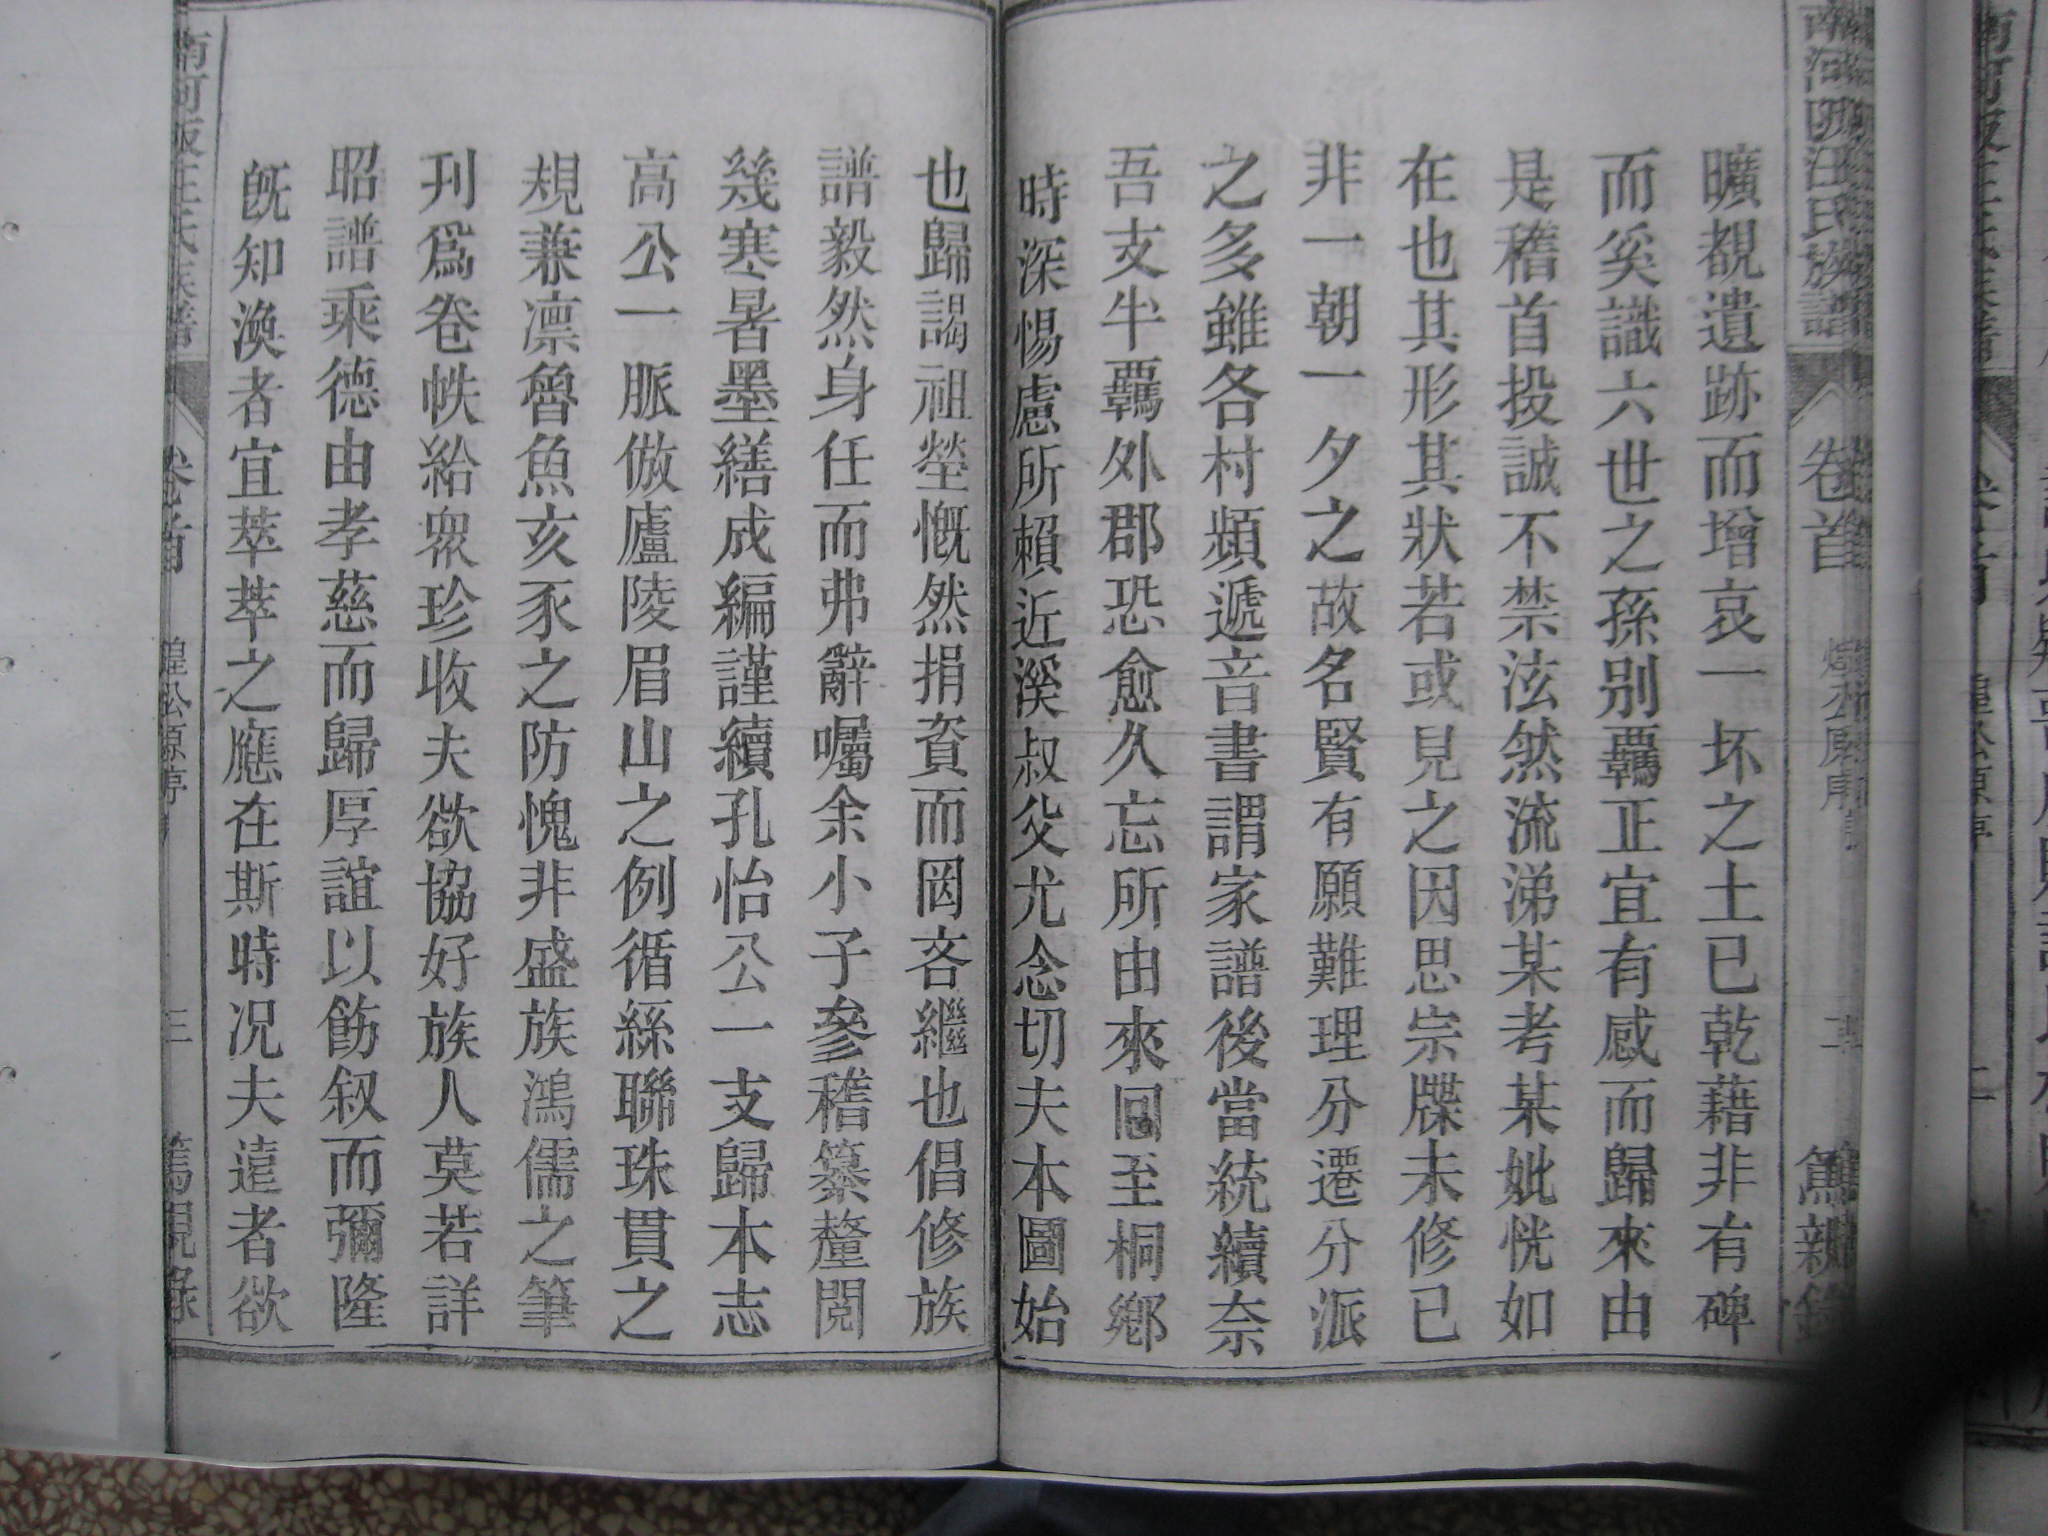 汪氏族譜
卷首
三
曠覩遺跡而增哀一坏之土已乾藉非有碑
而奚識六世之孫别覊正宜有感而歸來由
是稽首投誠不禁泫然流涕某考某妣恍如
在也其形其狀若或見之因思宗牒未修已
非一朝一夕之故名賢有願難理分遷分派
之多雖各村頻遞音書謂家譜後當統續奈
吾支半覊外郡恐愈久忘所由來囘至桐鄉
時深惕慮所賴近溪叔父尤念切夫本圖始
也歸謁祖塋慨然捐資而罔吝繼也倡修族
譜毅然身任而弗辭囑余小子參稽纂釐閱
幾寒暑墨繕成編謹續孔怡公一支歸本志
高公一脈倣廬陵眉山之例循絲聯珠貫之
規兼凛魯魚亥豕之防愧非盛族鴻儒之筆
刋爲卷帙給衆珍收夫欲協好族人莫若詳
昭譜乘德由孝慈而歸厚誼以飭叙而彌隆
旣知渙者宜萃萃之應在斯時况夫遠者欲
卷首
三